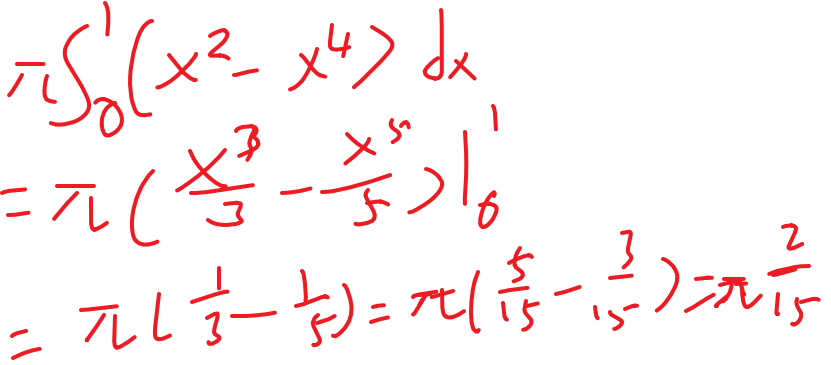 π∫₀¹(x² - x⁴)dx
= π(x³/3 - x⁵/5)|₀¹
= π(1/3 - 1/5) = π(5/15 - 3/15) = π 2/15